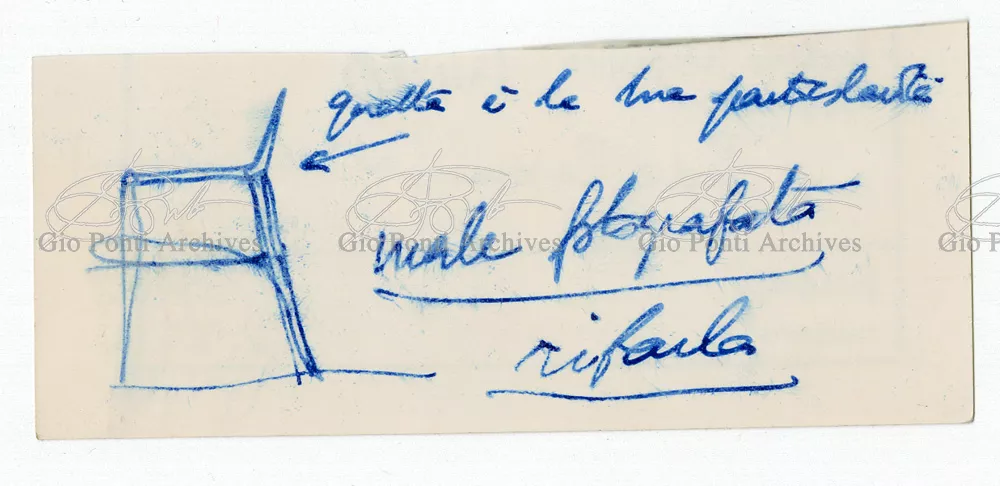 questa è la sua particolarità
male fotografata
rifarla
Gio Ponti Archives Gio Ponti Archives Gio Ponti Archives Gio Pon